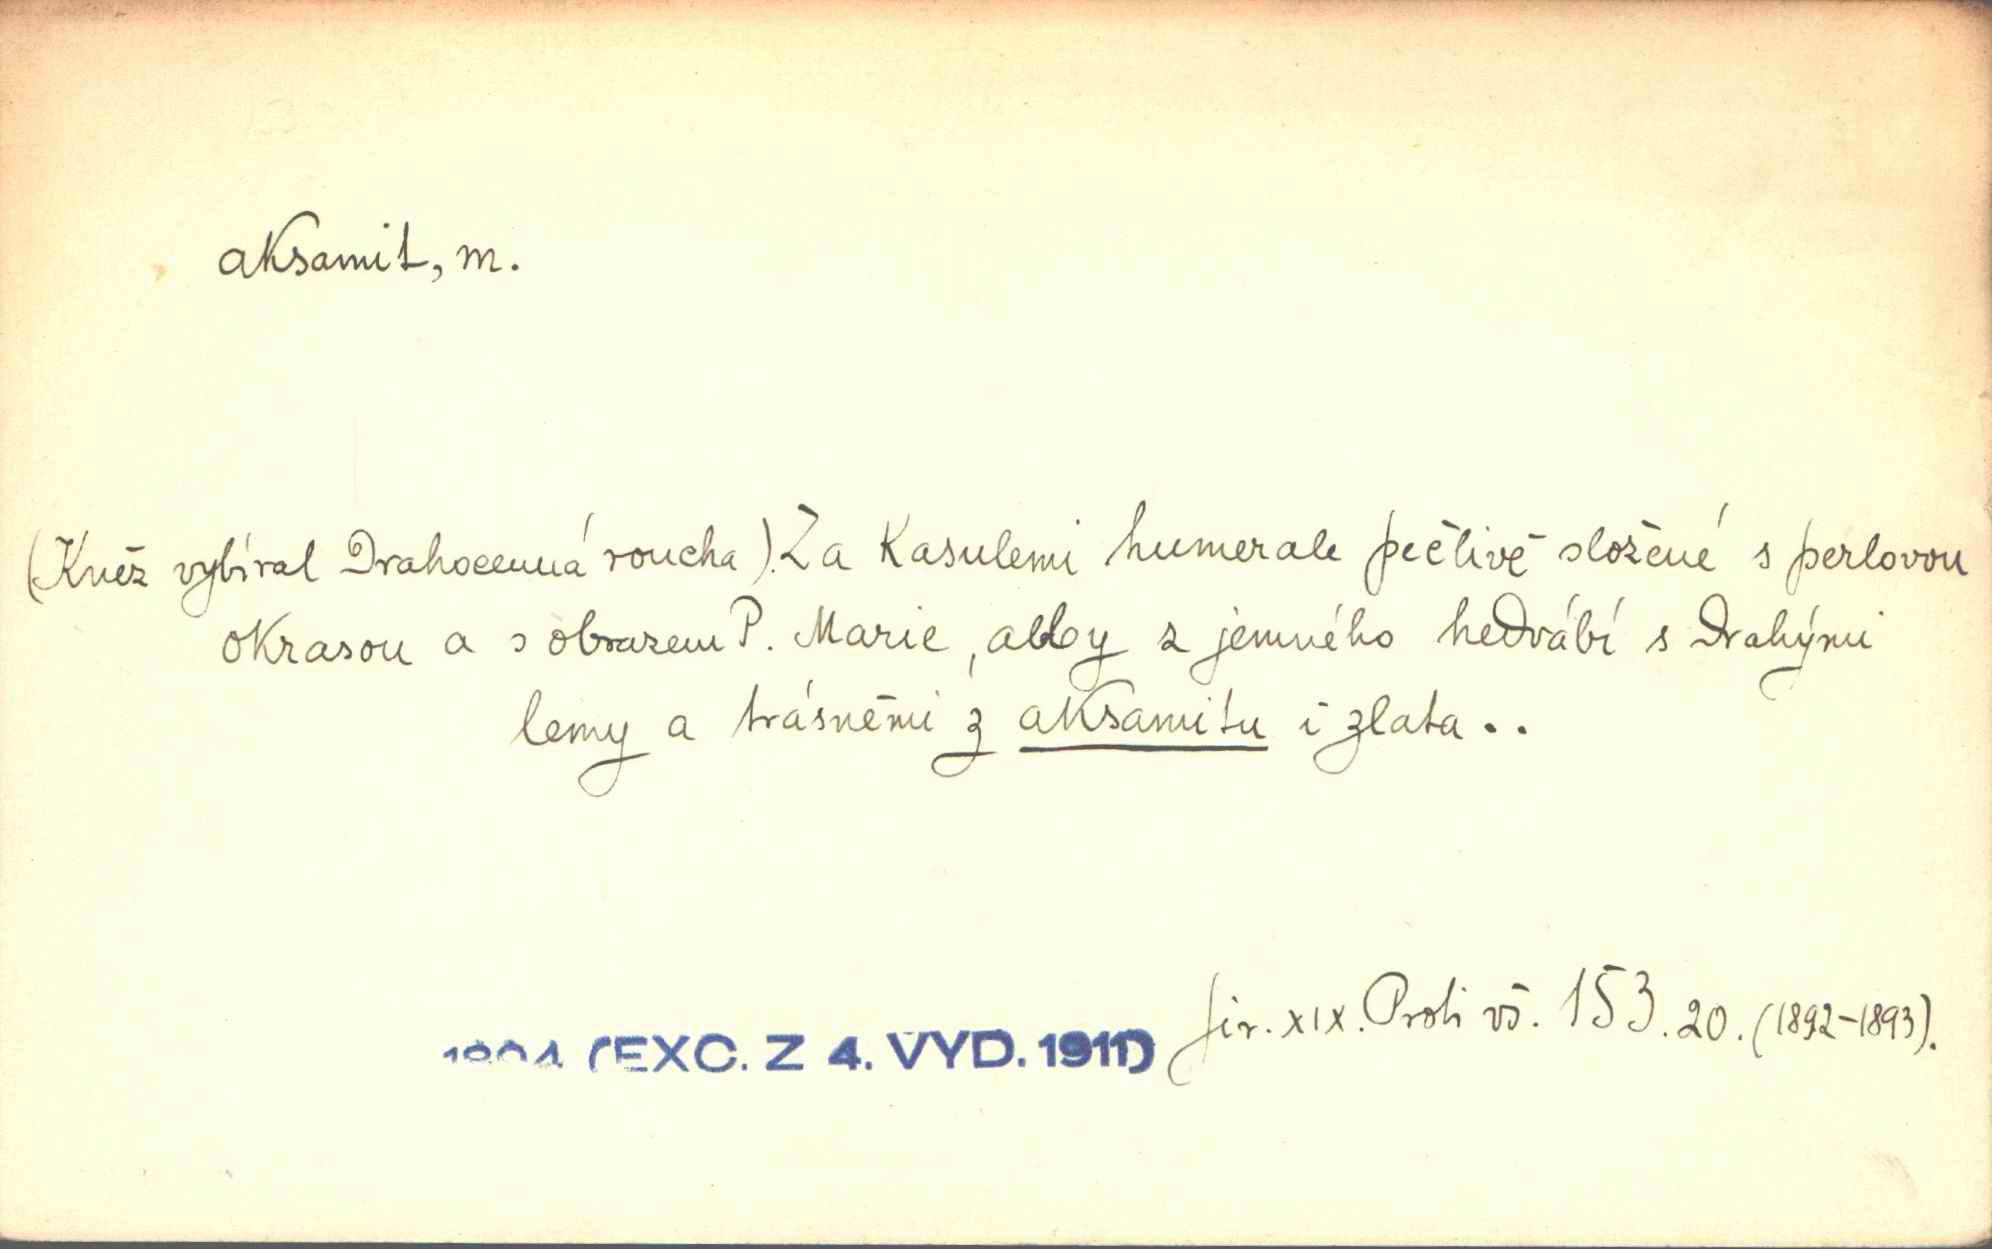 aksamit, m.
(Kněz vybíral drahocenná roucha). Za kasulemi humerale pečlivě složené s perlovou
okrasou a s obrazem P. Marie, alby z jemného hedvábí s drahými
lemy a trásněmi z aksamitu i zlata..
Jir. XIX. Proti vš. 153. 20. (1892-1893).
(EXC. Z 4. VYD. 1911)